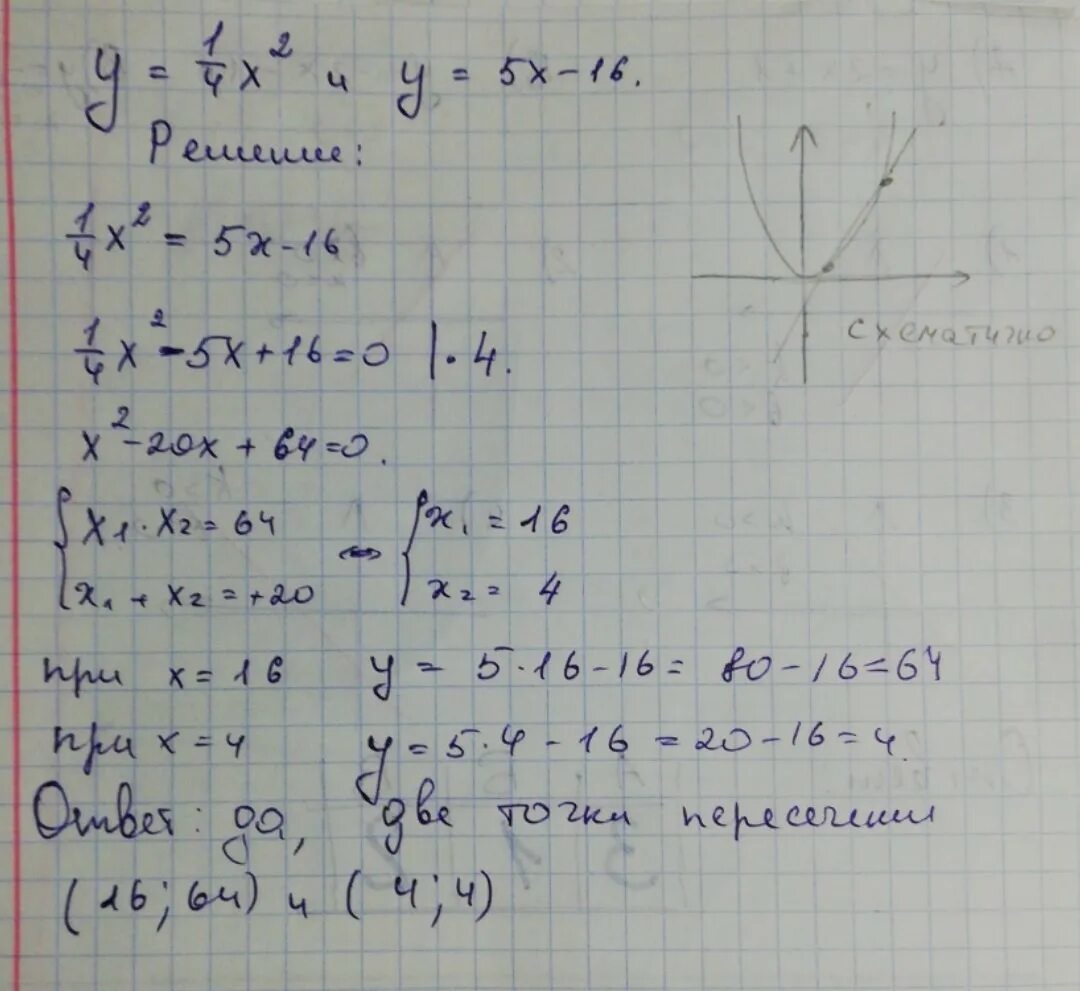 y = 1/4 x² и y = 5x - 16.
Решение:
1/4 x² = 5x - 16
1/4 x² - 5x + 16 = 0 | · 4.
схематично
x² - 20x + 64 = 0.
{ x₁ · x₂ = 64 ⇔ { x₁ = 16
x₁ + x₂ = +20 x₂ = 4
при x = 16 y = 5 · 16 - 16 = 80 - 16 = 64
при x = 4 y = 5 · 4 - 16 = 20 - 16 = 4.
Ответ: да, две точки пересечения
(16; 64) и (4; 4)